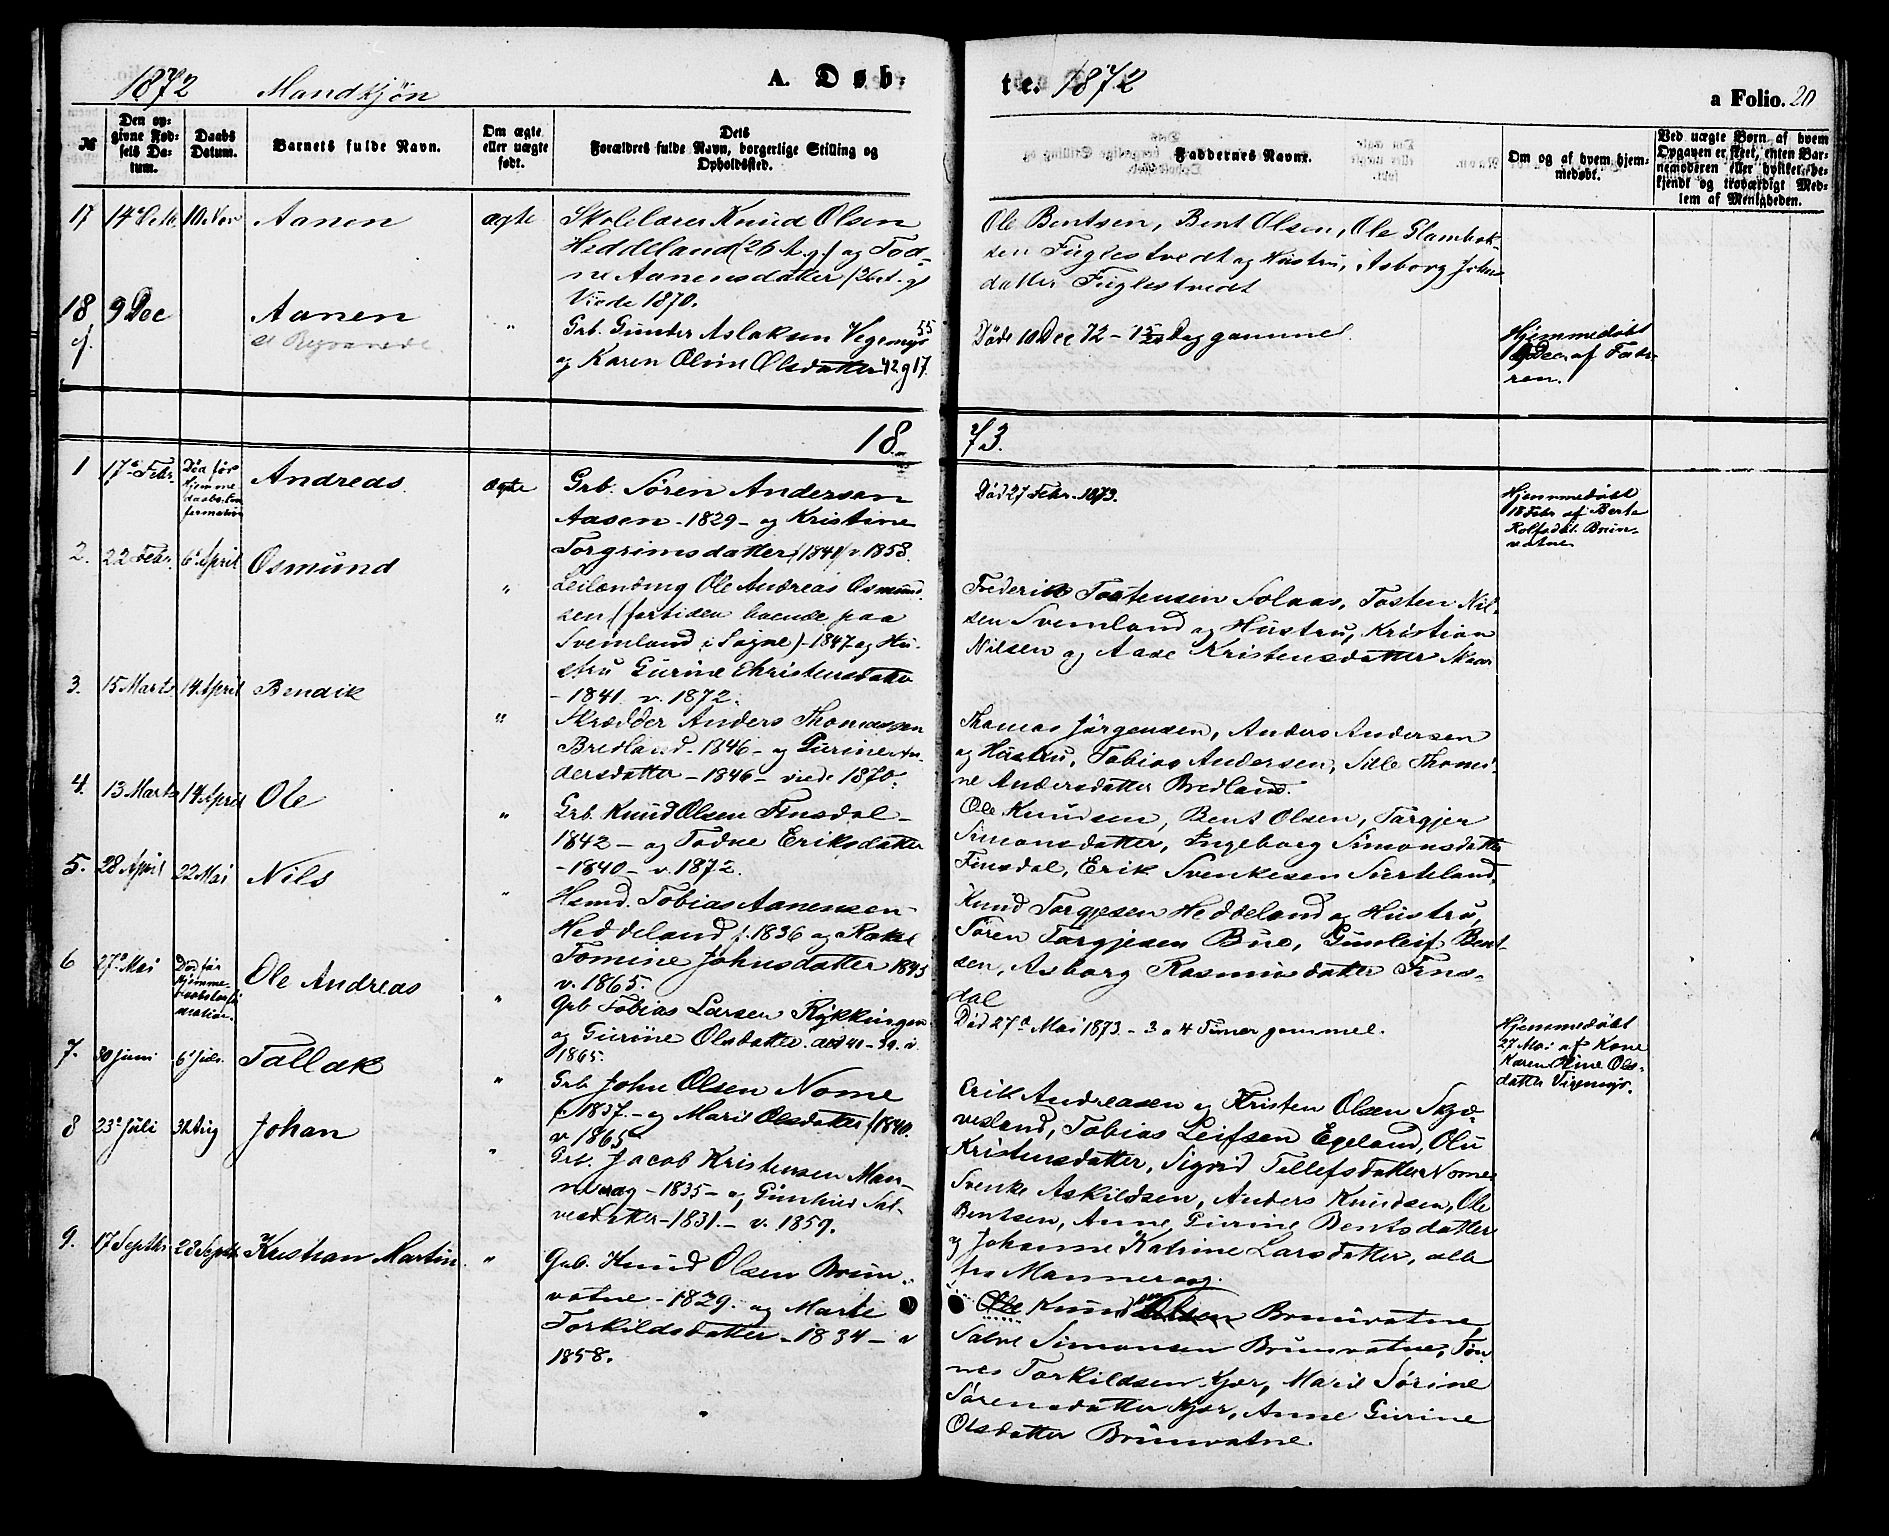 1872 Mandkjøn
A. Døb-
te. 1872
a Folio. 20
№
Den op-
givne Fød-
sels Da-
tum.
Daabs
Datum.
Barnets fulde Navn.
Om ægte
eller uægte
født.
Dets
Forældres fulde Navn, borgerlige Stilling og
Opholdssted.
Faddernes Navne.
Om og af hvem hjem-
medøbt.
Ved uægte Børn af hvem
Opgaven er skeet, enten Bar-
nemoderen eller hvilket be-
kjendt og troværdigt Med-
lem af Menigheden.
17 14 Octo. 10 Nov Aanen ægte
Skolelærer Knud Olsen
Heddeland (26 A. g.) og Tod-
ne Aanensdatter (26 A. g)
Viede 1870.
Ole Bentsen, Bent Olsen, Ole Glambek-
sen Fuglestvedt og Hustru, Asborg Johns
datter Fuglestvedt
18 9 Dec Aanen "
Grb. Gunder Aslaksen Vegemyr 55
og Karen Oline Olsdatter 42 g 17.
Døde 10 Dec 72 - Dag gammel.
Hjemmedøbt
10 Dec. af Fade-
ren.
1873.
1 17de Febr. Død før
Hjemme
daabs Con
firmation
Andreas. ægte
Grb. Søren Andersen
Aasen - 1829 - og Kristine
Torgrimsdatter (1841) v. 1858.
Død 27 Febr. 1873.
Hjemmedøbt
18 Febr af Berte
Rolfsdat. Brun-
vatne
2. 22 Febr. 6te April Osmund "
Leilænding Ole Andreas Osmund-
sen (fortiden boende paa
Svemland i Søgne) - 1847 og Hu-
stru Gurine Christensdatter
- 1841. v. 1872.
Frederik Tostensen Solaas, Tosten Nil-
sen Svemland og Hustru, Kristian
Nilsen og Aase Kristensdatter
3. 15 Marts 14 April Bendik "
Skrædder Anders Thomassen
Bredland - 1846 - og Gurine An-
dersdatter - 1846 - viede 1870.
Thomas Jørgensen, Anders Andersen
og Hustru, Tobias Andersen, Sille Thomi-
ne Andersdatter Bredland.
4. 13 Marts 14 April Ole "
Grb. Knud Olsen Finsdal -
1842 - og Todne Eriksdatter
- 1840 - v. 1872.
Ole Knudsen, Bent Olsen, Targjer
Simonsdatter, Ingeborg Simonsdatter
Finsdal, Erik Svenkesen Sverteland,
5. 28 April 22 Mai Nils "
Hsmd. Tobias Aanensen
Heddeland f. 1836 og Rakel
Tomine Johnsdatter 1843
v. 1865.
Knud Torgjesen Heddeland og Hustru,
Søren Torgjesen Bue, Gunleif Bent-
sen, Asborg Rasmusdatter Fins-
dal
6 27de Mai Død før
Hjemme-
daabs Confir
mation.
Ole Andreas "
Grb Tobias Larsen Røkkingen
og Gurine Olsdatter
1865.
Død 27de Mai 1873 - 3 a 4 Timer gammel.
Hjemmedøbt
27 Mai af Kone
Karen Oline Ols-
datter Vigemyr.
7. 30 Juni 6te Juli. Tallak "
Grb John Olsen Nome
f. 1837 - og Maril Olsdatter (1840.
v. 1865
Erik Andreasen og Kristen Olsen Skjæ-
vesland, Tobias Leifsen Egeland, Olu
Kristensdatter, Sigrid Tellefsdatter Nome
8 23de Juli 3die Aug Johan "
Grb. Jacob Kristensen Man-
nerag - 1835 - og Gunhild Sal-
vesdatter - 1831. - v. 1859.
Svenke Askildsen, Anders Knudsen, Ole
Bentsen, Anne Gurine Bentsdatter
og Johanne Katrine Larsdatter, alle
fra Mannerag.
9. 17 Septbr 28 Septbr Kristian Martin. "
Grb. Knud Olsen Brun-
vatne - 1829. og Marte
Torkildsdatter - 1834 - v
1858.
Ole Knud Olsen Brunvatne,
Salve Simonsen Brunvatne, Tøn-
nes Torkildsen Kjær, Maril Sørine
Sørensdatter Kjær, Anne Gurine
Olsdatter Brunvatne.